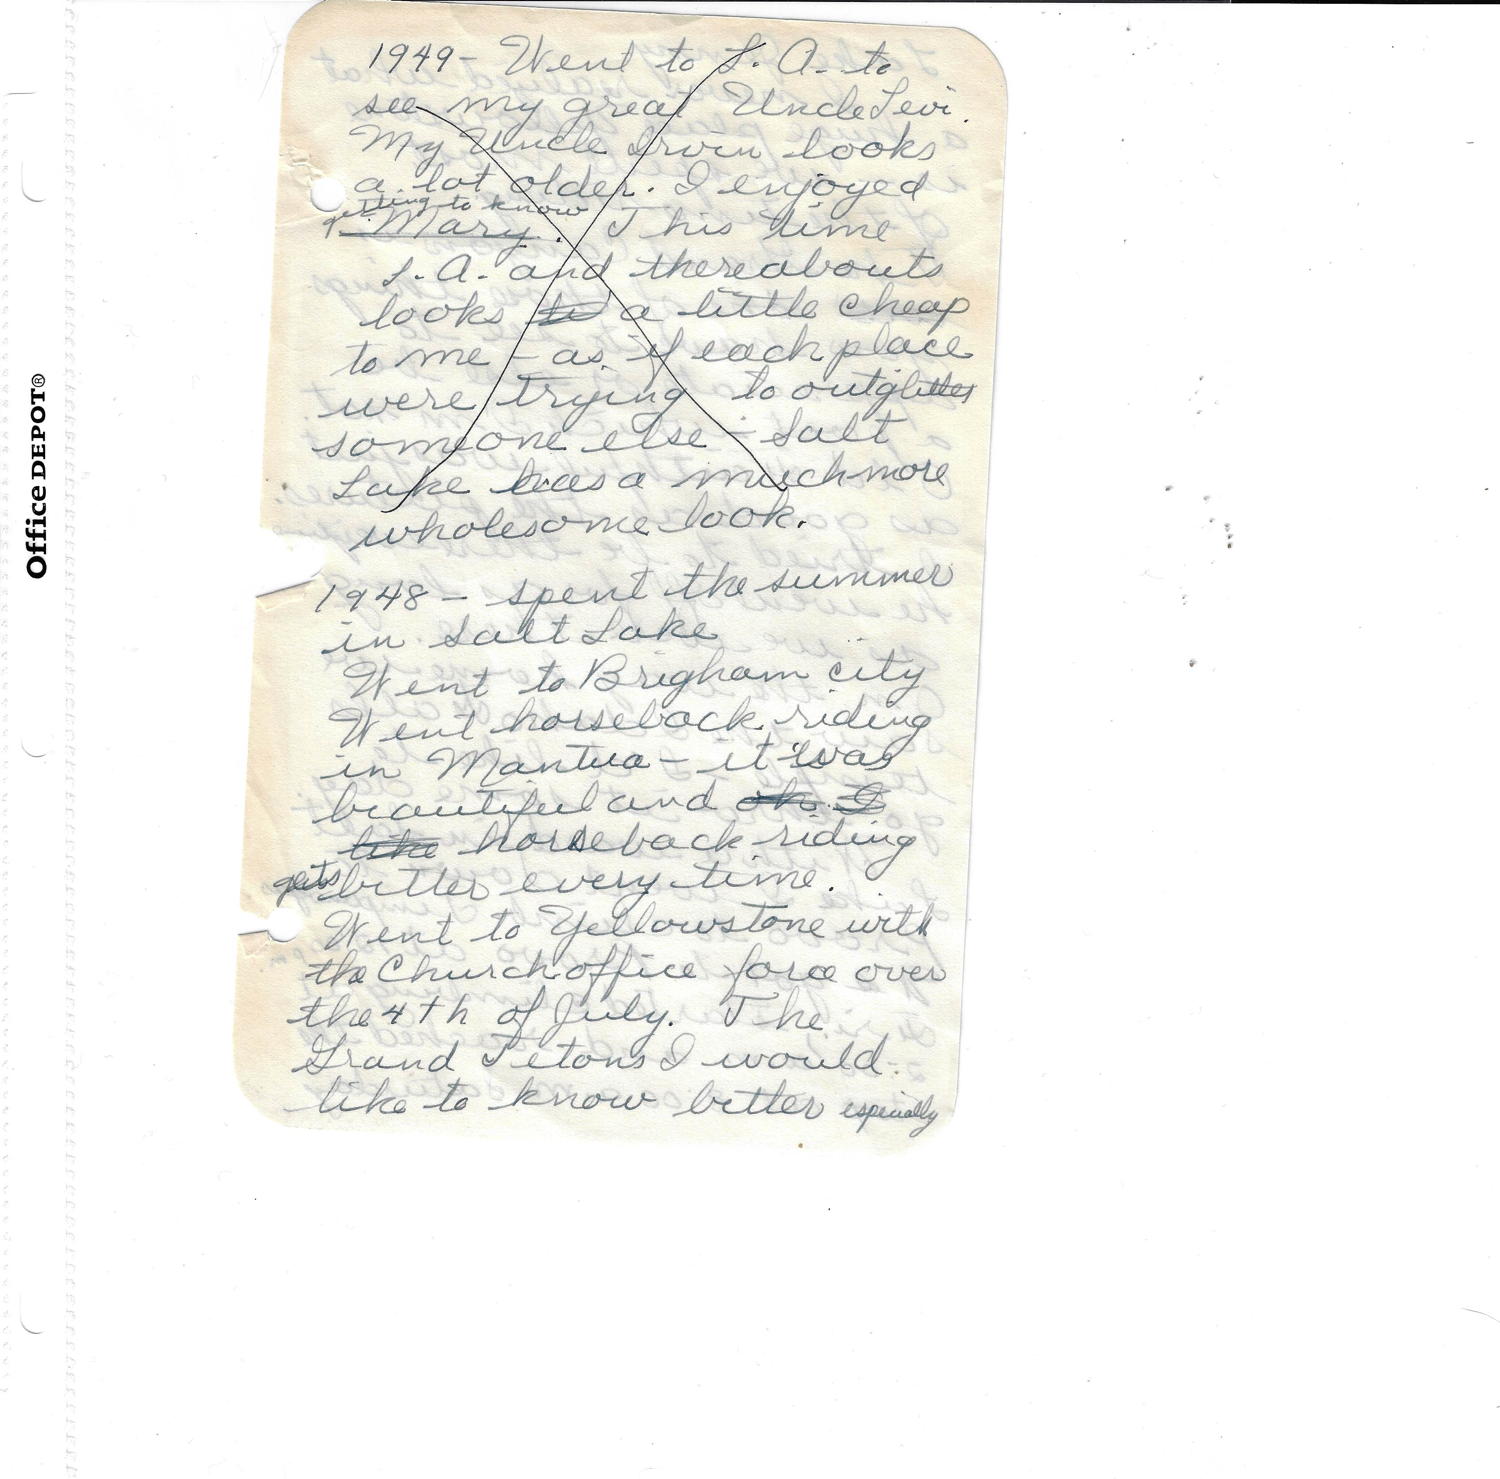 Office DEPOT®
1949 - Went to L. A. to
see my great Uncle Levi.
My Uncle Irvin looks
a lot older. I enjoyed
getting to know
Mary. This time
L. A. and thereabouts
looks a little cheap
to me - as if each place
were trying to outglitter
someone else - Salt
Lake has a much more
wholesome look.
1948 - spent the summer
in Salt Lake
Went to Brigham city
Went horseback riding
in Mantua - it was
beautiful and ok. I
like horseback riding
gets better every time.
Went to Yellowstone with
the Church office force over
the 4th of July. The
Grand Tetons I would
like to know better especially